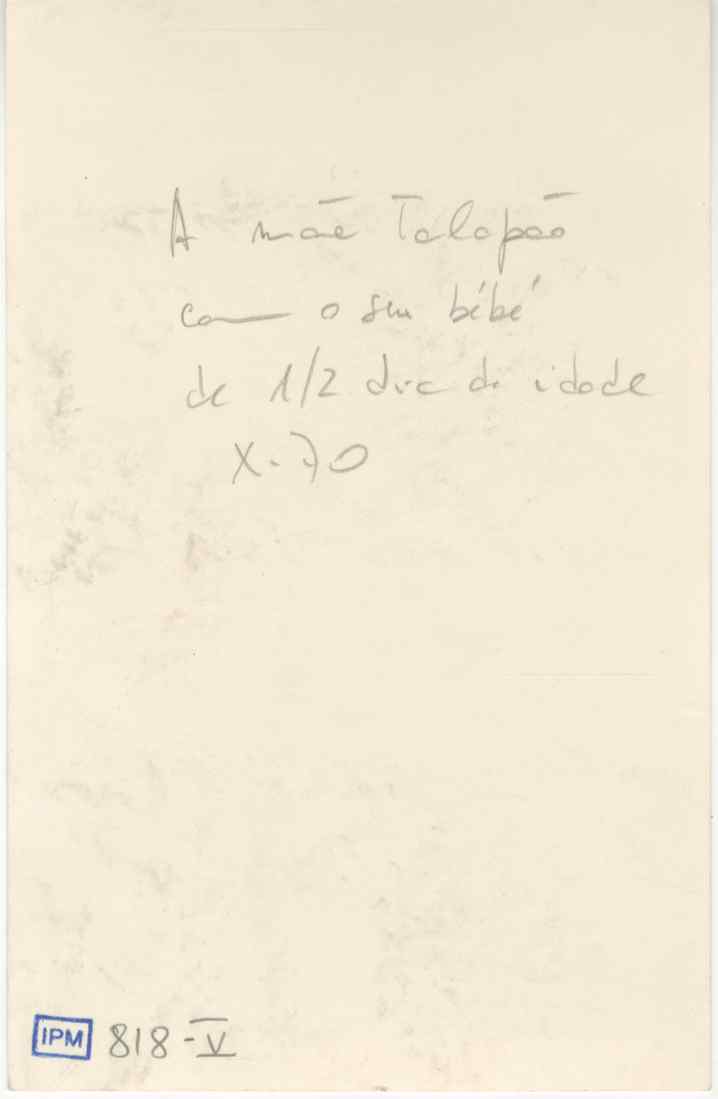 A mãe Talapão
com o seu bébé
de 1/2 dia de idade
X-70
IPM 818-V